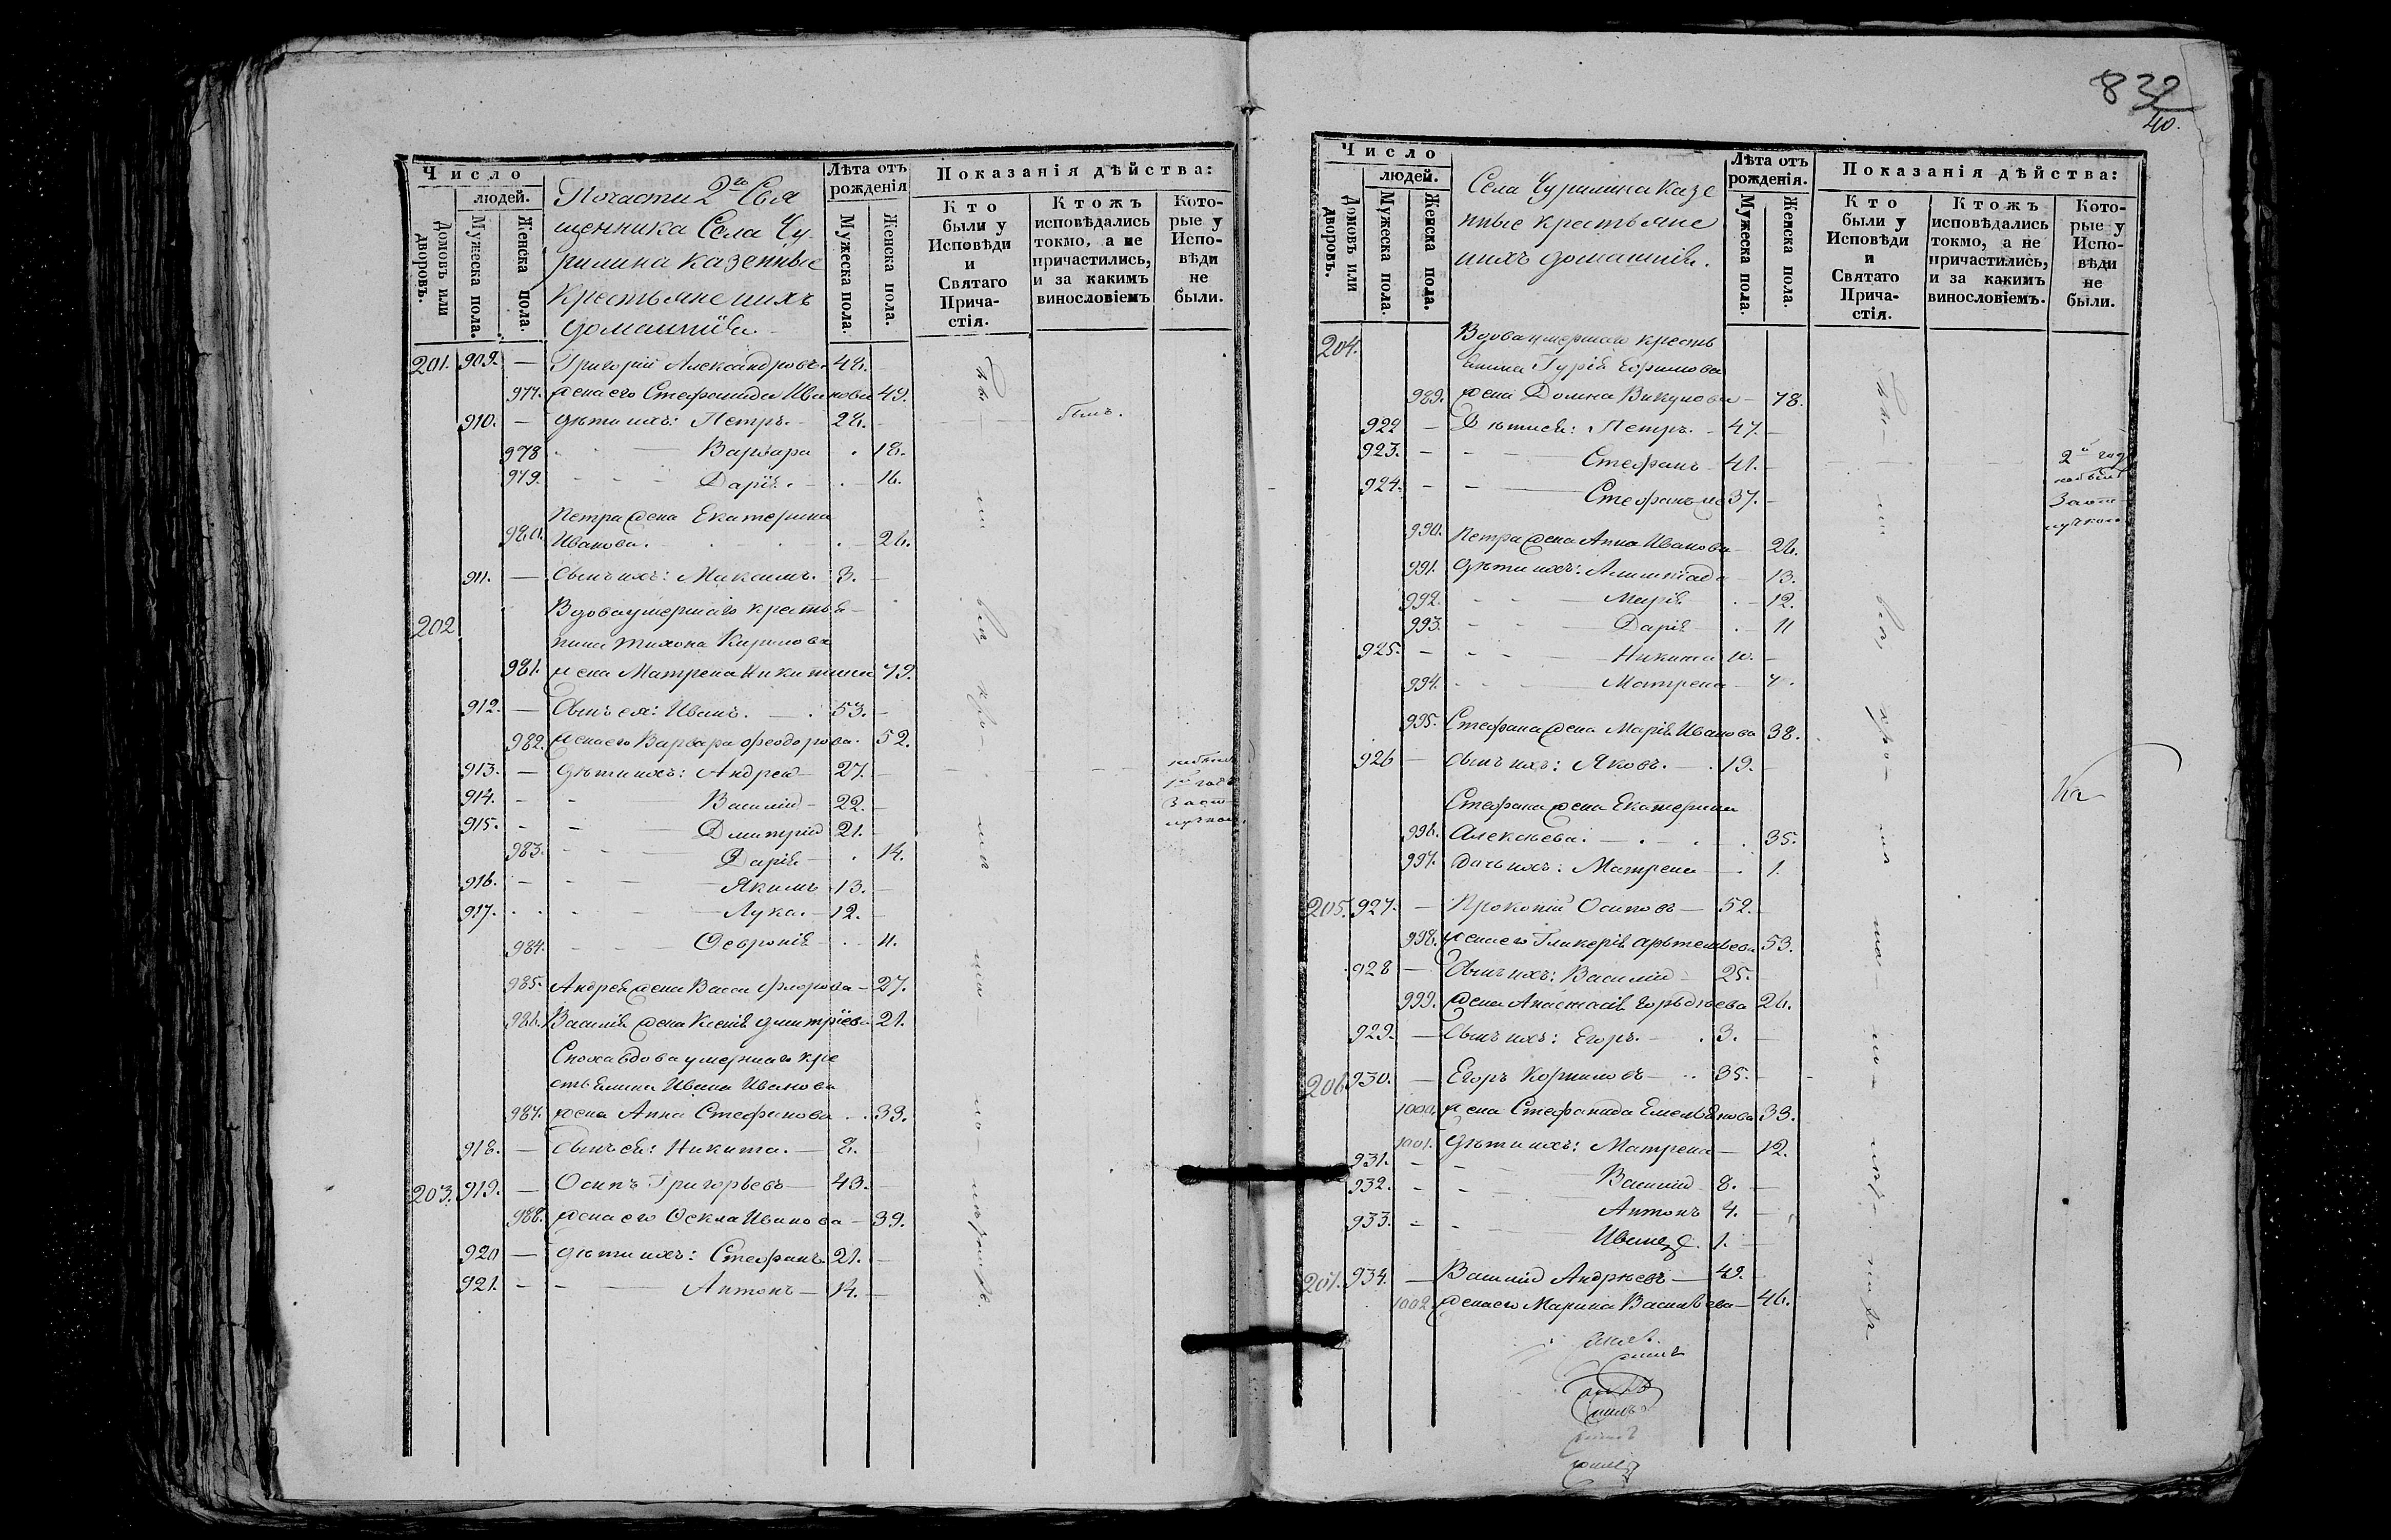 Число
людей.
Домовъ или дворовъ.
Мужеска пола.
Женска пола.
По части 2го Свя
щенника Села Чу-
рилина казенные
крестьяне и ихъ
домашнія.
Лѣта отъ рожденія
Мужеска пола.
Женска пола.
Показанія дѣйства:
Кто были у Исповѣди и Святаго Прича-стія.
Ктожъ исповѣдались токмо, а не причастились, и за какимъ винословіемъ
Кото-рые у Испо-вѣди не были.
201. 909. — Григорій Александровъ. 48. —
977. жена его Стефанида Иванова 49.
910. — дѣти ихъ: Петръ. — 28. — былъ.
978 — Варвара . 18.
979. — Дарія. — . — 16.
Петра жена Екатерина
980. Иванова. . — 28.
911. — сынъ ихъ: Максимъ. 3. —
202 Вдова умершаго крестья-
нина Тихона Кирилова
981. жена Матрена Никитина 79.
912. — Сынъ ея: Иванъ. — . 53. —
982. жена его Варвара Феодорова. 52.
913. — дѣти ихъ: Андрей — 27. — небылъ
914. — — Василій — 22. — 1й годъ
915. — — Дмитрій 21. — За от-
983. — Дарія — . 14. лучкою.
916. — — Якимъ 13. —
917. . — Лука. — 12. —
984. — Февронія — . — 11.
985. Андрея жена Васса Флорова — 27.
986. Василія жена Ксенія Дмитріева 21.
Сноха вдова умершаго кре
стьянина Ивана Иванова
987. жена Анна Стефанова . . 33.
918. — Сынъ ея: Никита. — 8. —
203. 919. — Осипъ Григорьевъ — 43. —
988. жена его Фекла Иванова — 39.
920 — дѣти ихъ: Стефанъ 21. —
921. — — Антонъ — 14. —
832
40.
Число
людей.
Домовъ или дворовъ.
Мужеска пола.
Женска пола.
Села Чурилина казе
нные крестьяне
и ихъ домашнія.
Лѣта отъ рожденія.
Мужеска пола.
Женска пола.
Показанія дѣйства:
Кто были у Исповѣди и Святаго Прича-стія.
Ктожъ исповѣдались токмо, а не причастились, и за какимъ винословіемъ.
Кото-рые у Испо-вѣди не были.
204. Вдова умершаго кресть
янина Гурія Ефимова
989. жена Домна Викулова — 78.
922 — Дѣти ея: Петръ. — 47. —
923. — — Стефанъ — 41. — 2й годъ
924. — — Стефанъ 37. — небылъ
За от-
лучкою
990. Петра жена Анна Иванова — 28.
991. дѣти ихъ: — 13.
992. — Марія . — 12.
993. — Дарія . — 11
925. — — Никита 10. —
994. — Матрена — 7.
995. Стефана жена Марія Иванова 38.
926 — сынъ ихъ: Яковъ. — . 19. —
Стефана жена Екатерина
996. Алексѣева. — . . 35.
997. дочь ихъ: Матрена — . 1.
205. 927. — Прокопій Осиповъ — 52. —
998. жена его Гликерія Артемьева 53.
928 — Сынъ ихъ: Василій — 25. —
999. жена Анастасія Гордѣева 26.
929. — Сынъ ихъ: Егоръ. — . 3. —
206 930. — Егоръ Корниловъ — . . 35. —
1000. жена Стефанида Емельянова 33.
1001. дѣти ихъ: Матрена — 12.
931. — — Василій — 8. —
932. — — Антонъ 4. —
933. — — Иванъ. 1. —
207. 934. — Василій Андреевъ — 49. —
1002. жена его Марина Васильева — 46.